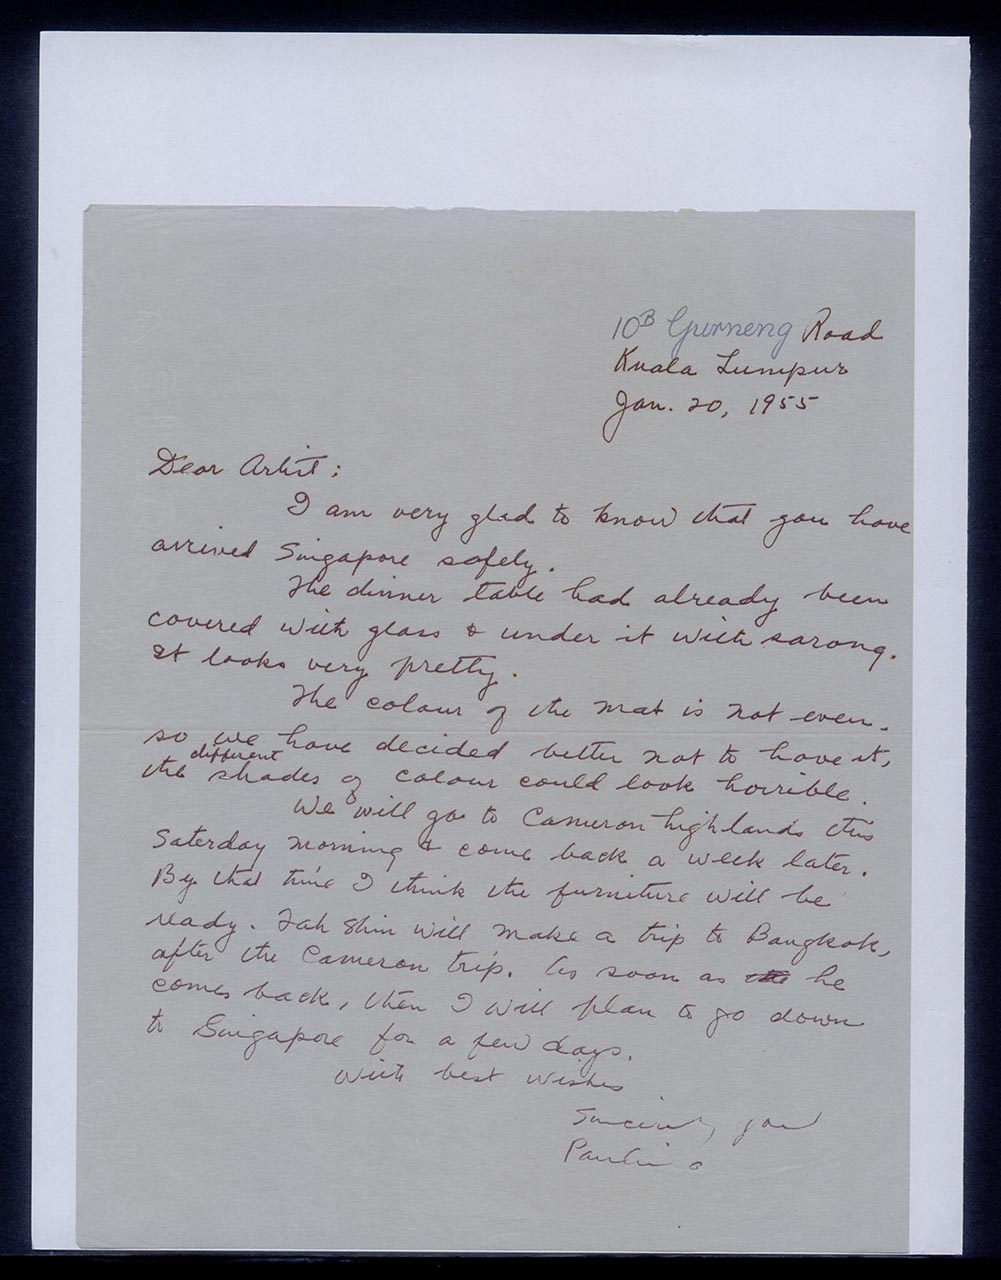 10B Gurneng Road
Kuala Lumpur
Jan. 20, 1955
Dear Artist:
I am very glad to know that you have
arrived Singapore safely.
The dinner table had already been
covered with glass & under it with sarong.
It looks very pretty.
The colour of the mat is not even.
so we have decided better not to have it,
the different shades of colour could look horrible.
We will go to Cameron highlands this
Saterday morning & come back a week later.
By that time I think the furniture will be
ready. Fah Shin will make a trip to Bangkok,
after the Cameron trip. As soon as he
comes back, then I will plan to go down
to Singapore for a few days.
With best wishes